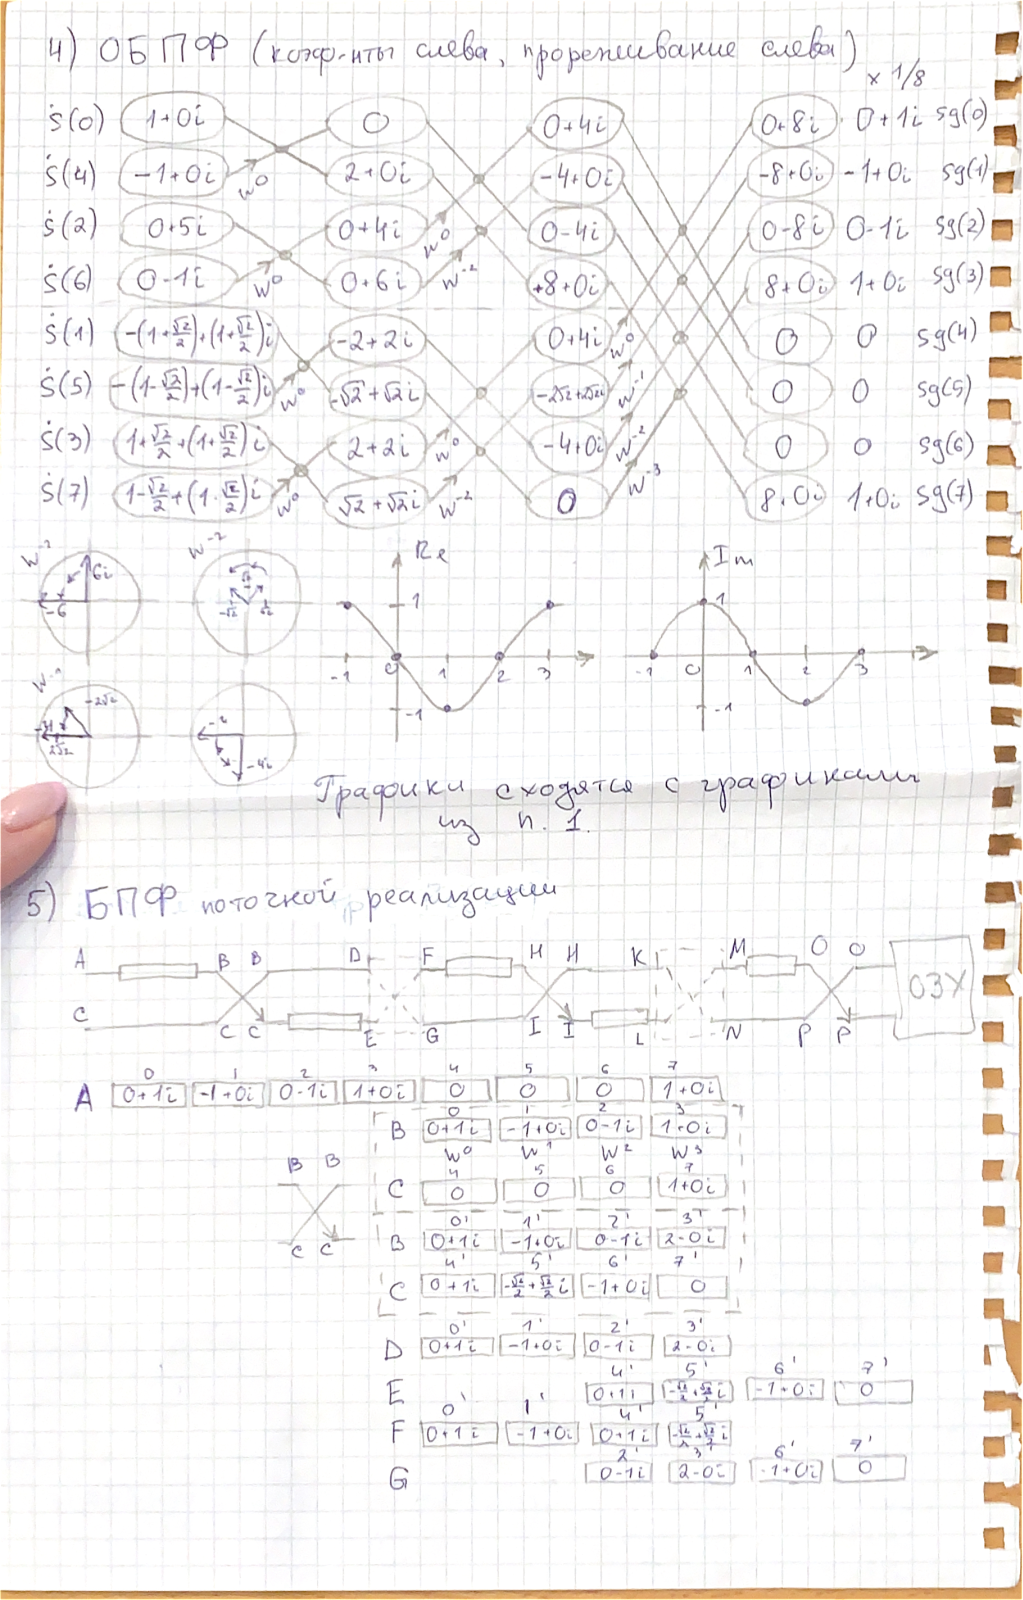 4) ОБПФ (коэф-нты слева, прореживание слева)
× 1/8
Ṡ(0) 1+0i 0 0+4i 0+8i 0+1i Sg(0)
Ṡ(4) -1+0i W⁰ 2+0i -4+0i -8+0i -1+0i Sg(1)
Ṡ(2) 0+5i 0+4i W⁰ 0-4i 0-8i 0-1i Sg(2)
Ṡ(6) 0-1i W⁰ 0+6i W⁻² +8+0i 8+0i 1+0i Sg(3)
Ṡ(1) -(1+√2/2)+(1+√2/2)i -2+2i 0+4i W⁰ 0 0 Sg(4)
Ṡ(5) -(1-√2/2)+(1-√2/2)i W⁰ -√2+√2i -2√2+2√2i W⁻¹ 0 0 Sg(5)
Ṡ(3) 1+√2/2+(1+√2/2)i 2+2i W⁰ -4+0i W⁻² 0 0 Sg(6)
Ṡ(7) 1-√2/2+(1-√2/2)i W⁰ √2+√2i W⁻² 0 W⁻³ 8+0i 1+0i Sg(7)
W⁻² W⁻² Re Im
6i √2 1 1
-6 -√2 √2
-1 0 1 2 3 -1 0 1 2 3
-2√2 -1 -1
2√2 -4i
Графики сходятся с графиками
из п. 1.
5) БПФ поточной реализации
A B B D F H H K M O O
ОЗУ
C C C E G I I L N P P
0 1 2 3 4 5 6 7
A 0+1i -1+0i 0-1i 1+0i 0 0 0 1+0i
0 1 2 3
B 0+1i -1+0i 0-1i 1+0i
W⁰ W¹ W² W³
B B 4 5 6 7
C 0 0 0 1+0i
0' 1' 2' 3'
C C B 0+1i -1+0i 0-1i 2-0i
4' 5' 6' 7'
C 0+1i -√2/2+√2/2i -1+0i 0
0' 1' 2' 3'
D 0+1i -1+0i 0-1i 2-0i
4' 5' 6' 7'
E 0+1i -√2/2+√2/2i -1+0i 0
0' 1' 4' 5'
F 0+1i -1+0i 0+1i -√2/2+√2/2i
2' 3' 6' 7'
G 0-1i 2-0i -1+0i 0